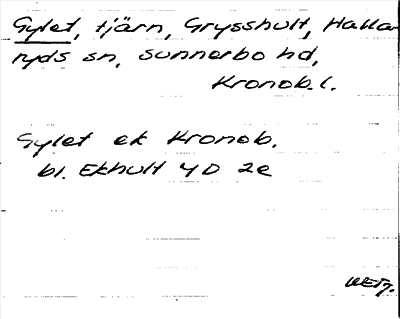 Gylet, tjärn, Grysshult, Halla-
ryds sn, Sunnerbo hd,
Kronob. l.
Gylet ek Kronob.
bl. Ekhult 4D 2e